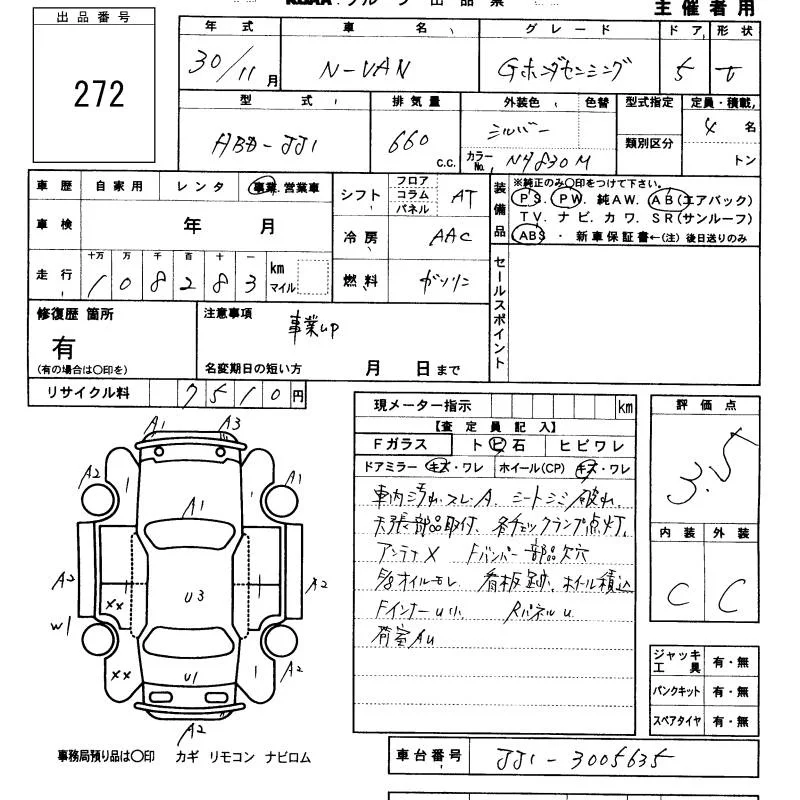 KCAA グループ 出品票
主催者用
出品番号
272
年式 車名 グレード ドア 形状
30/11月 N-VAN Gホンダセンシング 5 V
型式 排気量 外装色 色替 型式指定 定員・積載
ABD-JJ1 660 c.c. シルバー 類別区分 4名
カラーNo. NH830M トン
車歴 自家用 レンタ 事業・営業車
シフト フロア コラム パネル AT
装備品 ※純正のみ〇印をつけて下さい。
PS. PW. 純AW. AB(エアバック)
TV. ナビ. カワ. SR(サンルーフ)
ABS ・ 新車保証書←(注) 後日送りのみ
車検 年 月
冷房 AAC
走行 十万 万 千 百 十 一
1 0 8 2 8 3 km マイル
燃料 ガソリン
セールスポイント
修復歴 箇所
有
(有の場合は〇印を)
注意事項
事業up
名変期日の短い方 月 日まで
リサイクル料 7510円
現メーター指示 km
評価点
3.5
【査定員記入】
Fガラス トビ石 ヒビワレ
ドアミラー キズ・ワレ ホイール(CP) キズ・ワレ
車内汚れ.スレ.A. シートシミ破れ.
天張部品取付. 各チェックランプ点灯.
アンテナX Fバンパー部品欠穴
オイルモレ 看板跡. ホイール積込
Fインナーu小 Rパネルu
荷室Au
内装 外装
C C
ジャッキ工具 有・無
パンクキット 有・無
スペアタイヤ 有・無
A1 A3
A2 1 A1 1 A1
A3 U3 A2
XX
W1
XX U1 1 A2
A2
事務局預り品は〇印 カギ リモコン ナビロム
車台番号 JJ1-3005635